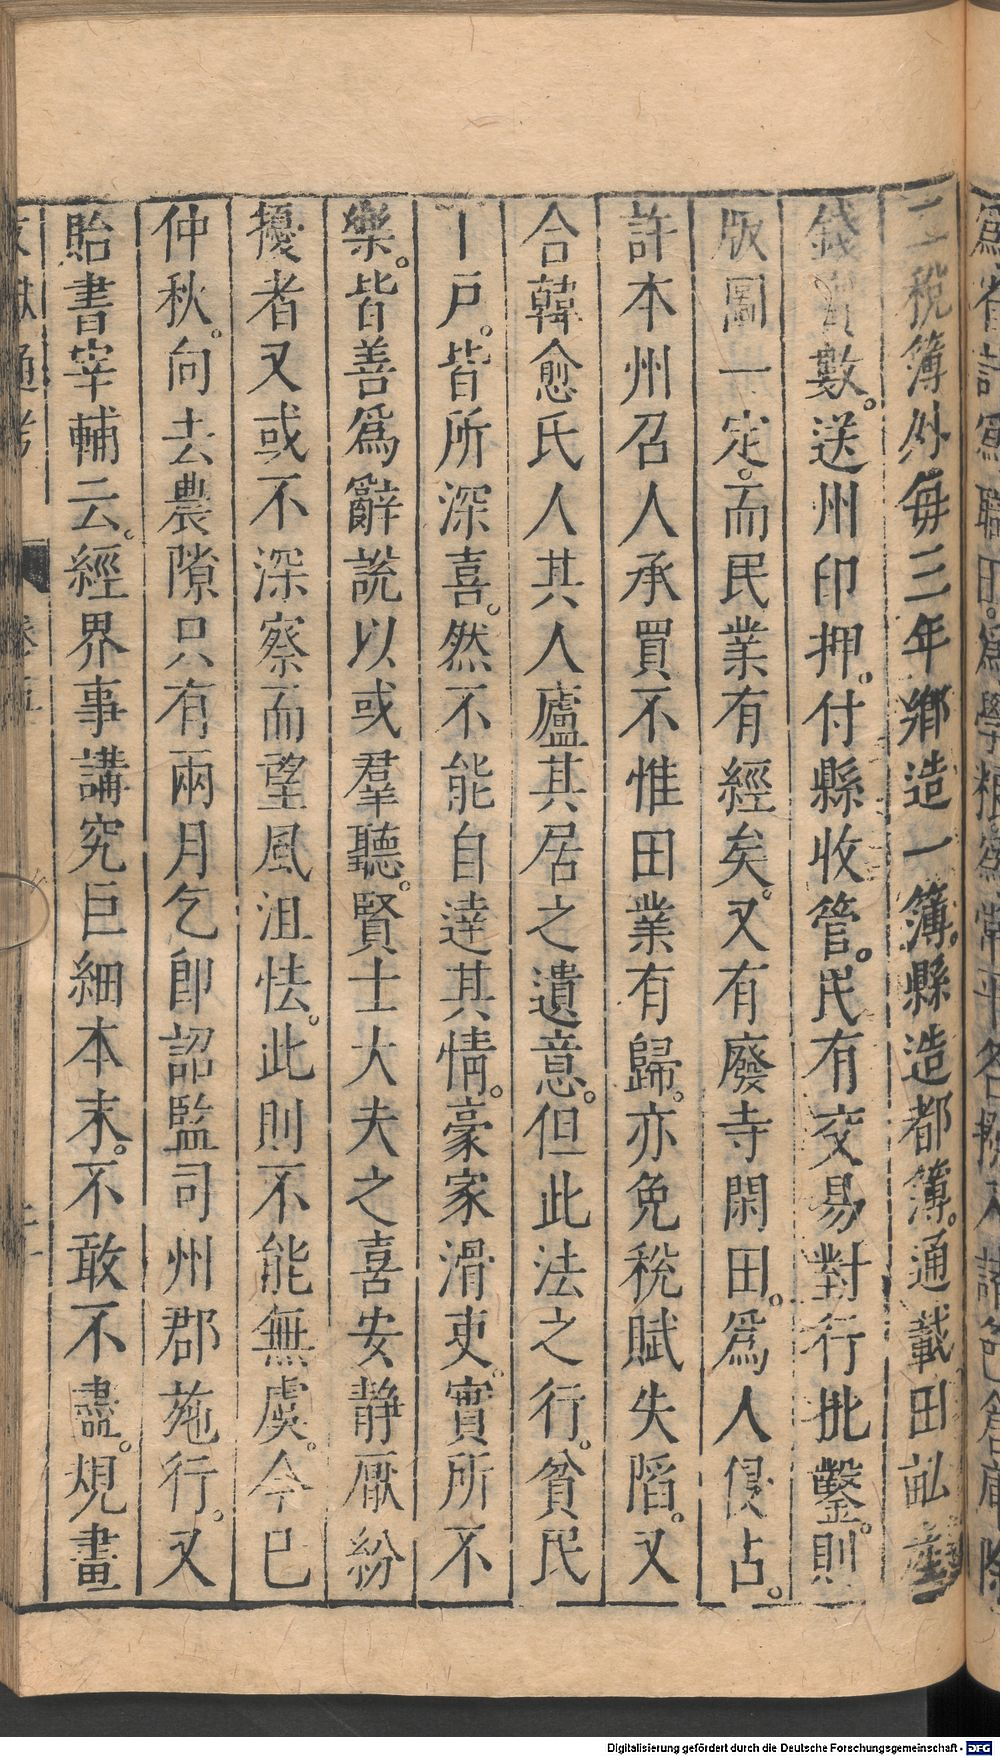 二稅簿外每三年鄉造一簿。縣造都簿。通載田畝產
錢實數。送州印押。付縣收管。民有交易對行批鑿。則
版圖一定。而民業有經矣。又有廢寺閑田。為人侵占。
許本州召人承買不惟田業有歸。亦免稅賦失陷。又
合韓愈氏人其人廬其居之遺意。但此法之行。貧民
下戶。皆所深喜。然不能自達其情。豪家滑吏。實所不
樂。皆善爲辭說以或羣聽。賢士大夫之喜安静厭紛
擾者又或不深察而望風沮怯。此則不能無虞。今巳
仲秋。向去農隙只有兩月乞卽詔監司州郡施行。又
貽書宰輔云。經界事講究巨細本末。不敢不盡。規畫
文獻通考 卷五
Digitalisierung gefördert durch die Deutsche Forschungsgemeinschaft - DFG